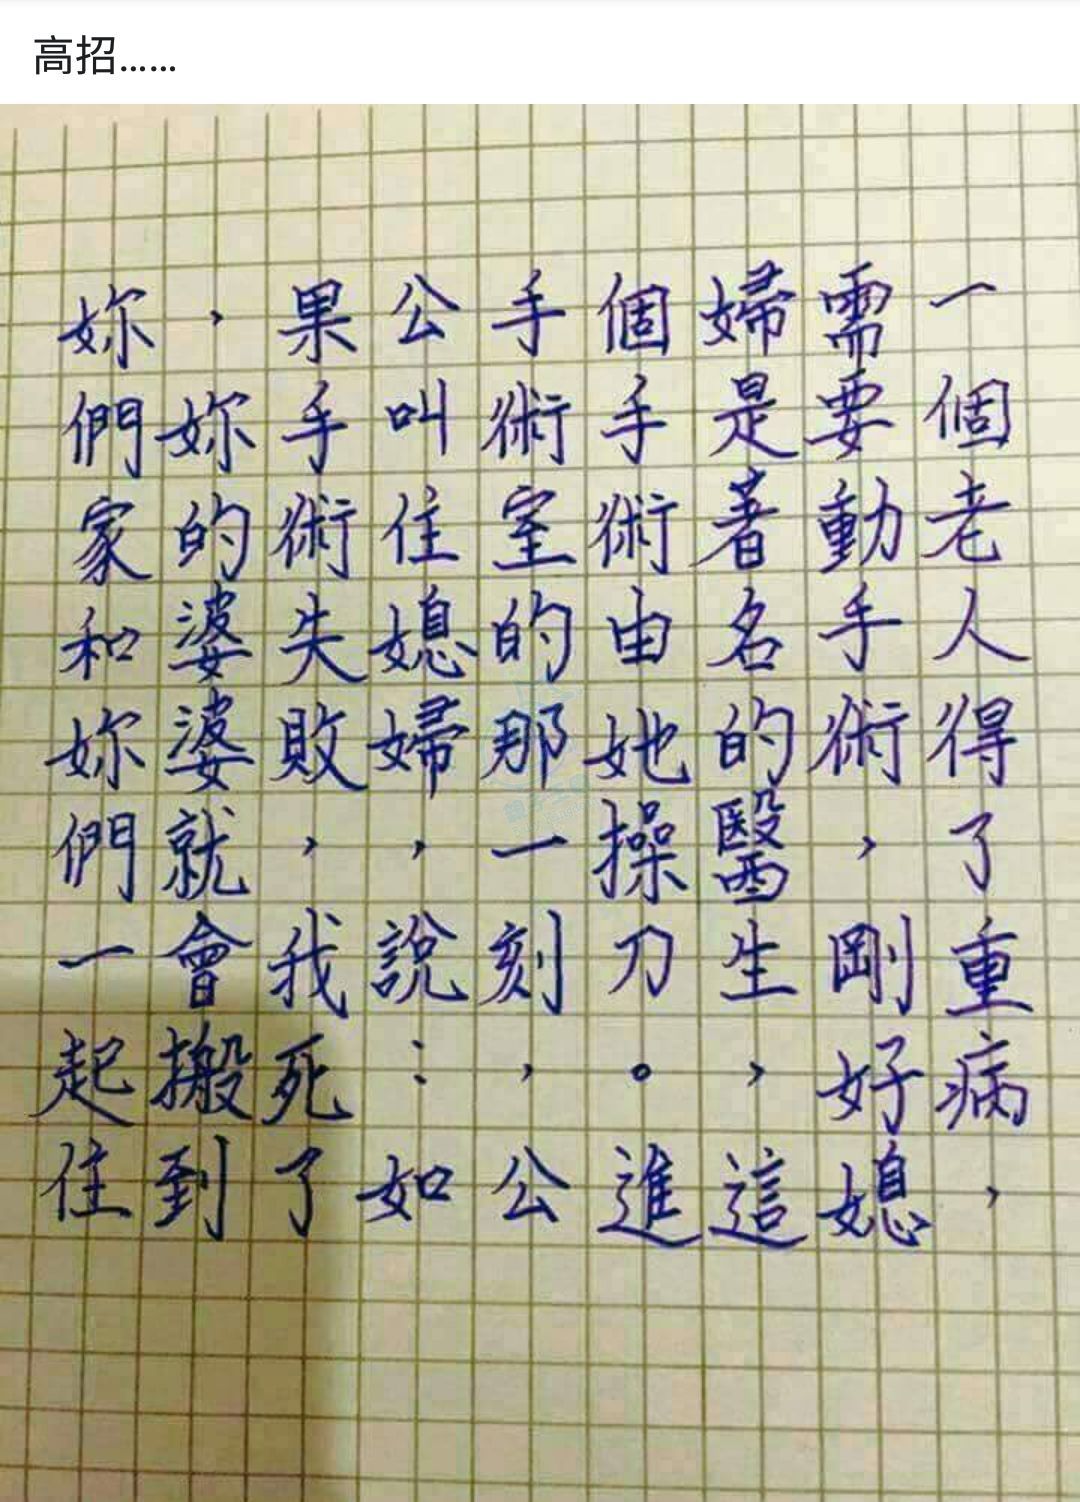 高招……
一個老人得了重病，
需要動手術，剛好媳
婦是著名的醫生，這
個手術由她操刀。進
手術室的那一刻，公
公叫住媳婦，說：如
果手術失敗，我死了
，妳的婆婆就會搬到
妳們家和妳們一起住